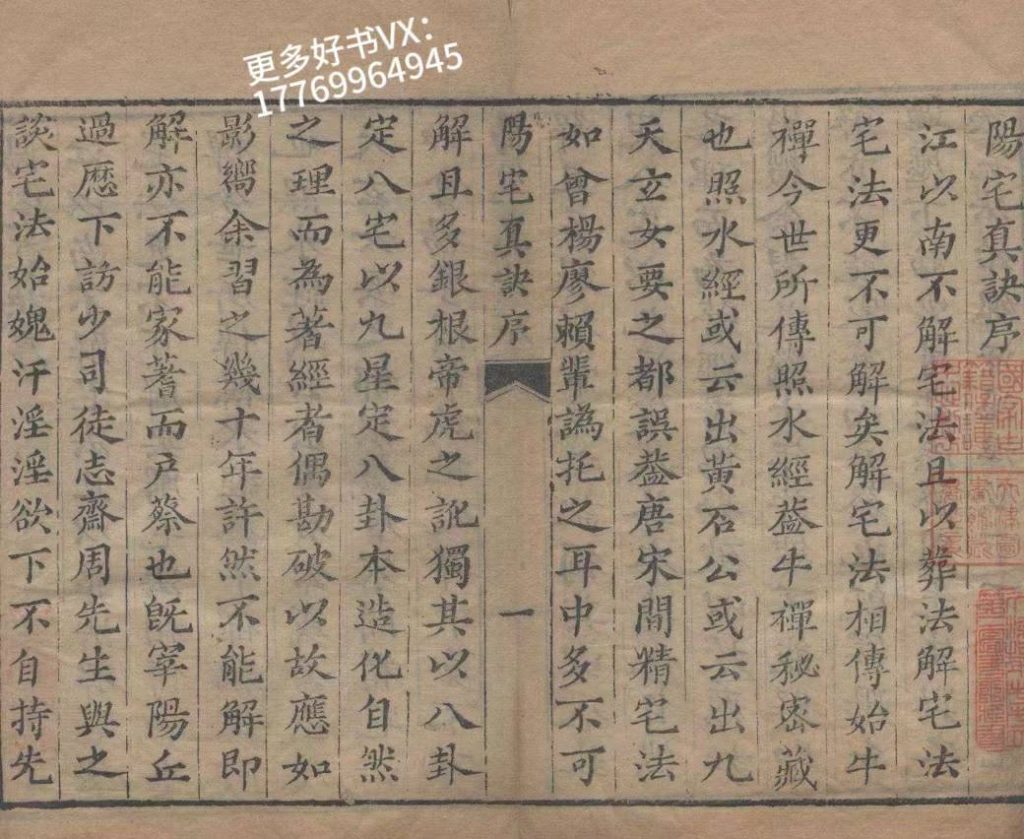 更多好书VX：
17769964945
陽宅真訣序
江以南不解宅法且以葬法解宅法
宅法更不可解矣解宅法相傳始牛
禪今世所傳照水經葢牛禪秘密藏
也照水經或云出黃石公或云出九
天玄女要之都誤葢唐宋間精宅法
如曾楊廖賴輩譌托之耳中多不可
陽宅真訣序
一
解且多銀根帝虎之訛獨其以八卦
定八宅以九星定八卦本造化自然
之理而為著經者偶勘破以故應如
影嚮余習之幾十年許然不能解即
解亦不能家蓍而戶蔡也旣宰陽丘
過歷下訪少司徒志齋周先生與之
談宅法始媿汗淫淫欲下不自持先